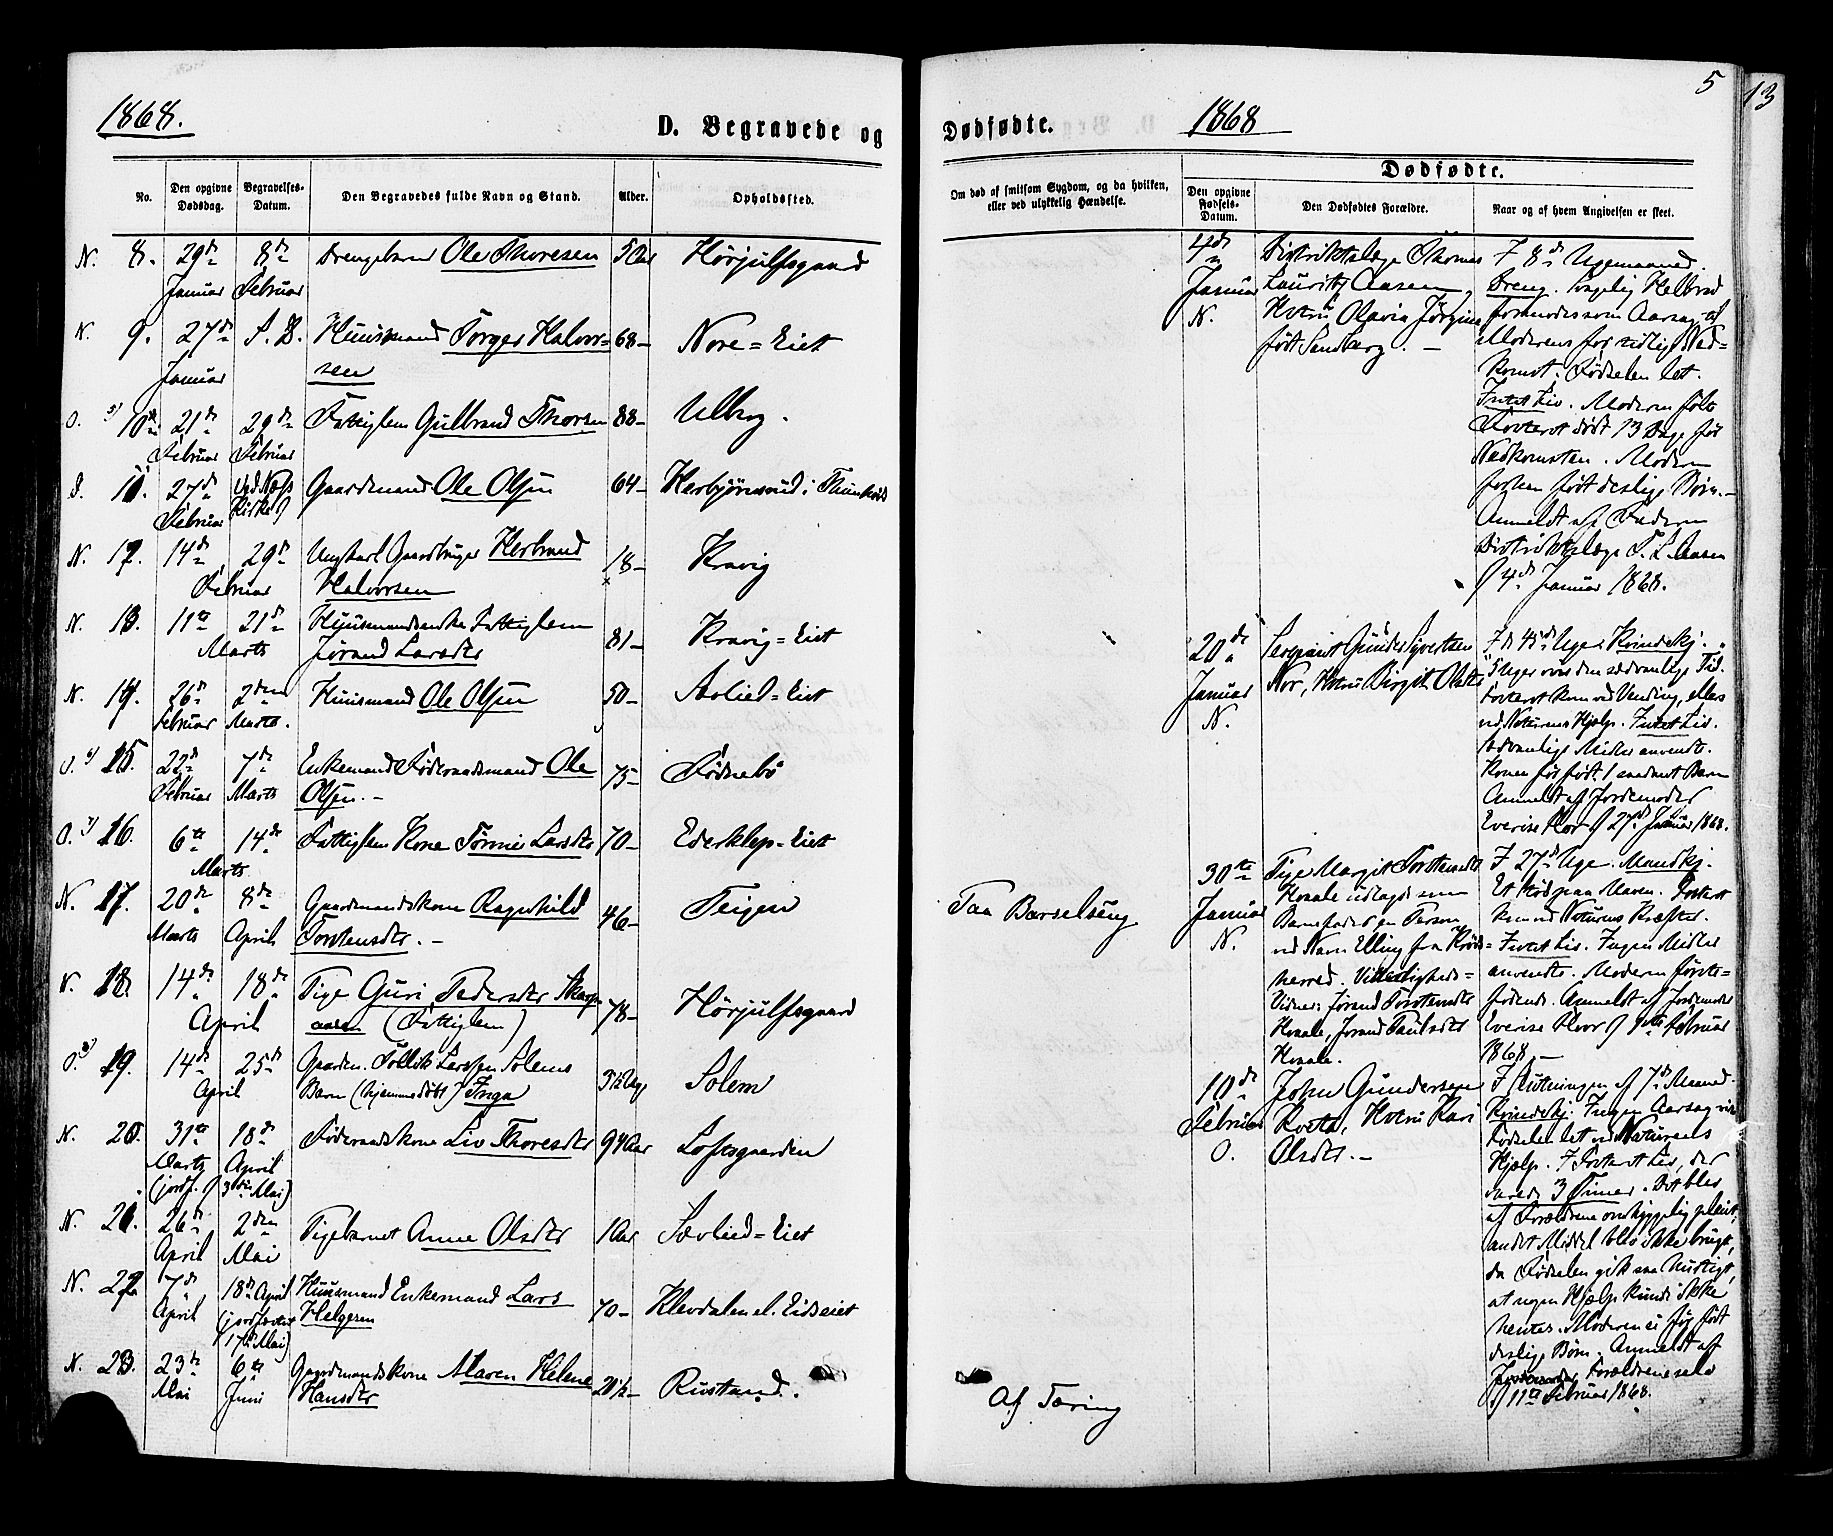 1868.
D. Begravede og
No.
Den opgivne Dødsdag.
Begravelses-Datum.
Den Begravedes fulde Navn og Stand.
Alder.
Opholdssted.
N. 8. 29de Januar 8de Februar Drengebarn Ole Thoresen 5 Aar Hørjulfsgaard
N. 9. 27de Januar S. D. Huusmand Torger Halvor-
sen 68 - Nore=Eiet
O. 10. 21de Februar 29de Februar Fattiglem Gulbrand Thorsen 88 - Ulberg.
11. 27de Februar ved Næss Kirke Gaardmand Ole Olsen 64 - Herbjørnsrud i
N. 12. 14de 29de Februar Ungkarl Gaardbruger Herbrand
Halvorsen 18 - Kravig
N. 13. 11te 21de Marts Huusmandsenke Fattiglem
Jørand Larsdtr 81 - Kravig=Eiet
N. 14. 26de Februar 2den Marts. Huusmand Ole Olsen 50 - Sævlied=Eiet
O. 15. 22de Februar 7de Marts Enkemand Føderaadsmand Ole
Olsen. - 75 - Fødnebø
O. 16. 6te 14de Marts Fattiglem Kone Tønnei Larsdtr 70 - Ederklep=Eiet
N. 17. 20de Marts 8de April Gaardmandskone Ragnhild
Torstensdtr. - 46 - Teigen
N. 18. 14de 18de April Pige Guri Pedersdtr Skarp-
aasen (Fattiglem) 78 - Hørjulfsgaard
O. 19. 14de 25de April Gaardm. Tollik Larssen Solems
Barn (hjemmedøbt) Inga 3½ Uge Solem
N. 20. 31te Marts 18de April (jordf. 3die Mai) Føderaadskone Liv Thoresdtr 94 Aar Loftsgaarden
N. 21. 26de April 2den Mai Pigebarnet Anne Olsdtr 1 Aar Sævlied=Eiet
N. 22. 7de April 18de April (jordfæstet 17de Mai) Huusmand Enkemand Lars
Helgesen 70 - Klevdalen el. Eidseiet
N. 23. 23de Mai 6te Juni Gaardmandskone Maren Helene
Hansdtr 20½ - Rustand.
5
13
Dødfødte.
1868
Om død af smitsom Sygdom, og da hvilken,
eller ved ulykkelig Hændelse.
Dødfødte.
Den opgivne Fødsels-Datum.
Den Dødfødtes Forældre.
Naar og af hvem Angivelsen er skeet.
Paa Barselseng
Af Tæring
4de Januar N.
Distriktslæge Thomas
Lauritz Aasen,
Hustru Olavia Jørgine
født Sandberg. -
I 8de Ugemaaned.
Dreng. Svagelig Helbred
formodes som Aarsag af
Moderens for tidlige Ned-
komst. Fødselen let.
Intet Liv. Moderen følt
Fosteret dødt 13 Dage før
Nedkomsten. Moderen
forhen født deslige Børn. -
Anmeldt af Faderen
Distriktslæge T. L. Aasen
4de Januar 1868.
20de Januar N.
Sergeant Gunder Syvertsen
Nor, Hustru Birgit Olsdtr
I 45de Uge. Kvindekj.
5 Uger over den sædvanlige Tid.
Fosteret kom ved Vending, eller
ved Naturens Hjælp. Intet Liv.
Sædvanlige Midler anvendte.
Konen før født 1 Barn
Anmeldt af Jordemoder
Everise Hvor 27de Januar 1868.
30te Januar N.
Pige Margit Torstensdtr
Hvaale udlagt som
Barnefader en Person
ved Navn Elling fra Krøds-
herred. Vitterligheds-
Vidner: Jørand Torstensdtr
Hvaale, Jorand Paulsdtr
Hvaale.
I 27de Uge. Mandkj.
Et Stød paa Maven. Fosteret
kom ved Naturens Kræfter.
Intet Liv. Ingen Midler
anvendte. Moderen første-
fødende. Anmeldt af Jordemoder
Everise Hvor 9de Februar
1868. -
10de Februar O.
John Gundersen
Kvata, Hustru Kari
Olsdtr. -
I Slutningen af 7de Maaned
Kvindekj. Ingen Aarsag
Fødselen let ved Naturens
Hjælp. I Fosteret Liv, der
varede 3 Timer. Det blev
af Forældrene omhyggelig pleiet,
andet Middel blev ikke brugt,
da Fødselen gik saa hurtigt,
at nogen Hjælp kunde ikke
hentes. Moderen ei før født
deslige Børn. Anmeldt af
Forældrene selv
11te Februar 1868.